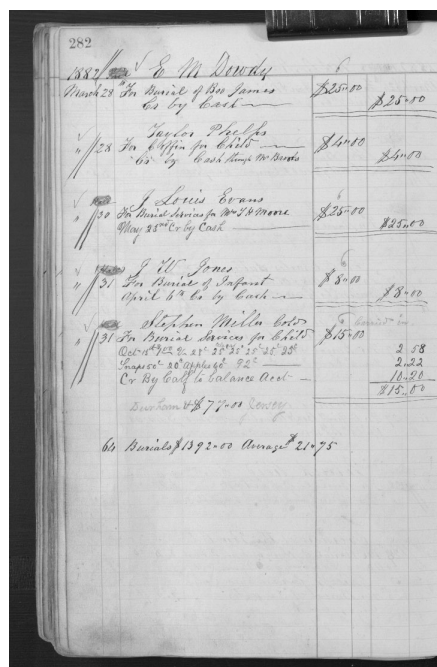 282
1882 E M Dowdy
March 28 For Burial of Bro James $25.00
Cr by Cash $25.00
Taylor Phelps
" 28 For Coffin for Child $4.00
Cr by Cash through Mr $4.00
J Louis Evans
" 30 For Burial Services for Mrs T H Moore $25.00
May 25nd Cr by Cash $25.00
J W Jones
" 31 For Burial of Infant $8.00
April 6th Cr by Cash $8.00
Stephen Miller Cold
" 31 For Burial Services for Child $15.00
Oct 25c 25c 25c 25c 2 58
Snaps 50c 20c Apples 92c 2.22
Cr By Calf to balance Acct 10.20
$15.00
Durham & $77.00 Jersey
64 Burials $1392.00 Average $21.75